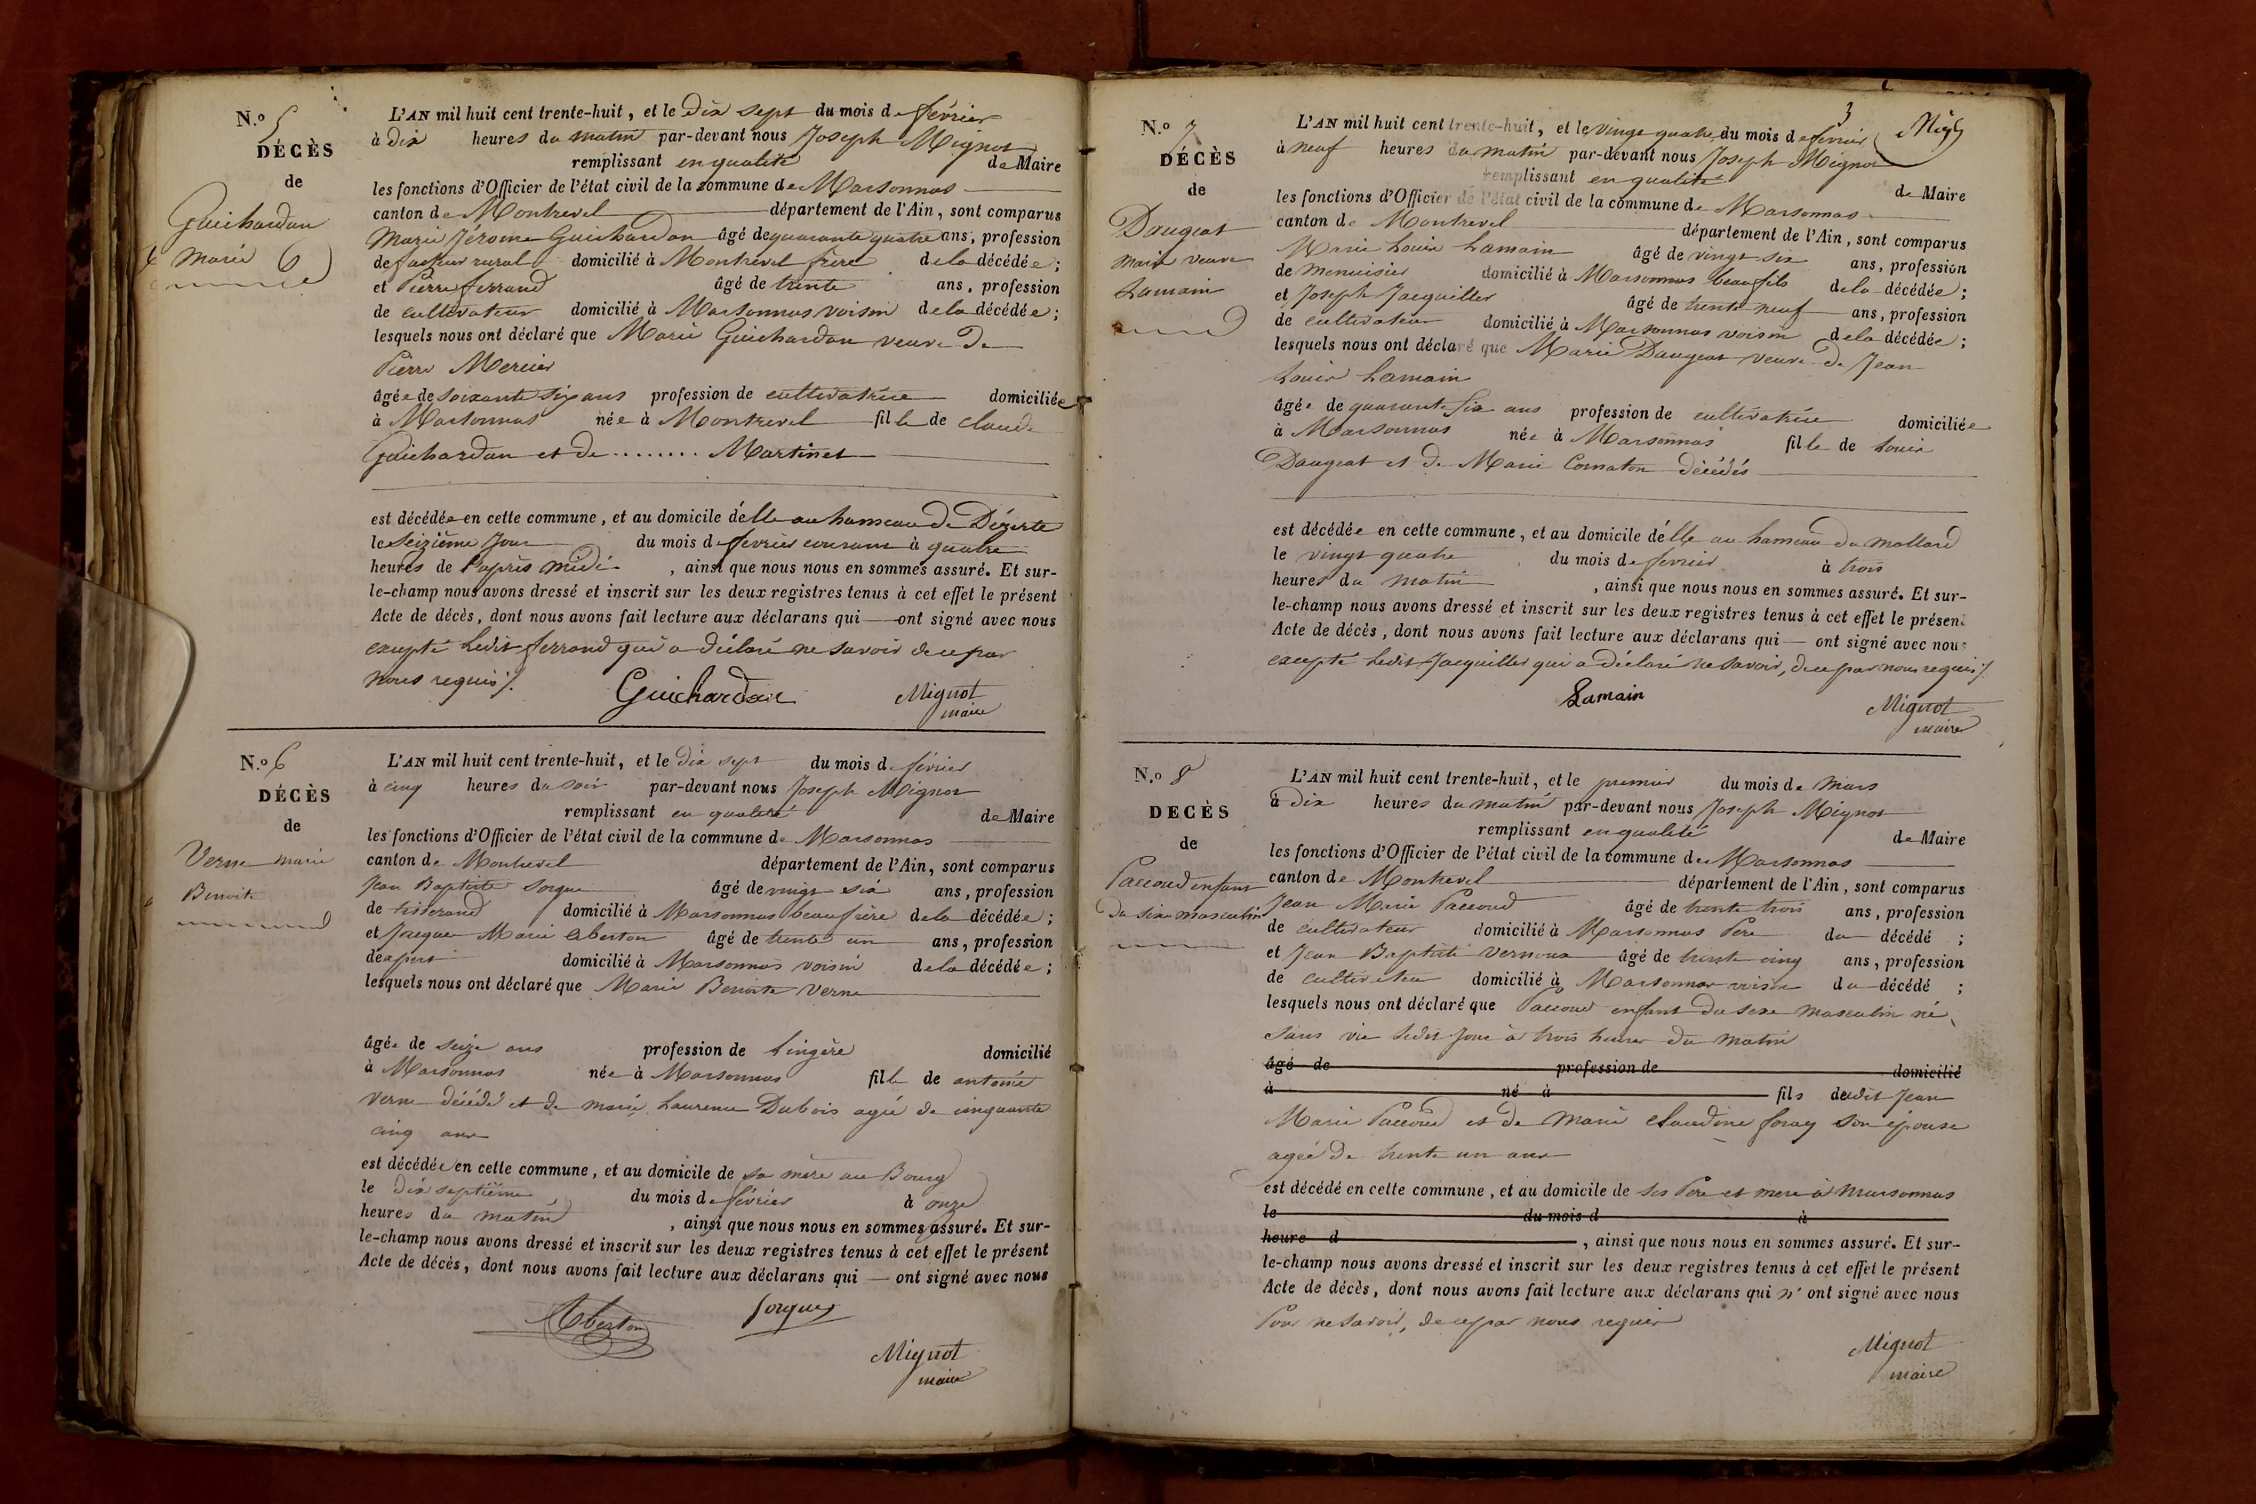 N.o 5
DÉCÈS
de
Guichardan
Marie
L'AN mil huit cent trente-huit, et le dix sept du mois de février
à dix heures du matin par-devant nous Joseph Mignot
remplissant en qualité de Maire
les fonctions d'Officier de l'état civil de la commune de Marsonnas
canton de Montrevel département de l'Ain, sont comparus
Marie Jérome Guichardan âgé de quarante quatre ans, profession
de facteur rural domicilié à Montrevel frère de la décédée;
et Pierre ferrand âgé de trente ans, profession
de cultivateur domicilié à Marsonnas voisin de la décédée;
lesquels nous ont déclaré que Marie Guichardan veuve de
Pierre Mercier
âgée de soixante six ans profession de cultivatrice domiciliée
à Marsonnas née à Montrevel fille de claude
Guichardan et de ........ Martinet
est décédée en cette commune, et au domicile d'elle au hameau de Dézerte
le seizième jour du mois de fevrier courant à quatre
heures de l'après midi, ainsi que nous nous en sommes assuré. Et sur-
le-champ nous avons dressé et inscrit sur les deux registres tenus à cet effet le présent
Acte de décès, dont nous avons fait lecture aux déclarans qui — ont signé avec nous
excepté ledit ferrand qui a déclaré ne savoir de ce par
nous requis ./.
Guichardan Mignot
maire
N.o 6
DÉCÈS
de
Verne marie
Benoite
L'AN mil huit cent trente-huit, et le dix sept du mois de février
à cinq heures du soir par-devant nous Joseph Mignot
remplissant en qualité de Maire
les fonctions d'Officier de l'état civil de la commune de Marsonnas
canton de Montrevel département de l'Ain, sont comparus
Jean Baptiste Sorgue âgé de vingt six ans, profession
de tisserand domicilié à Marsonnas beaufrère de la décédée;
et Jacques Marie Aberton âgé de trente un ans, profession
de domicilié à Marsonnas voisin de la décédée;
lesquels nous ont déclaré que Marie Benoite Verne
âgée de seize ans profession de Lingère domicilié
à Marsonnas née à Marsonnas fille de antoine
verne décédé et de marie Laurence Dubois agée de cinquante
cinq ans
est décédée en cette commune, et au domicile de sa mère au Bourg
le dix septième du mois de février à onze
heures du matin, ainsi que nous nous en sommes assuré. Et sur-
le-champ nous avons dressé et inscrit sur les deux registres tenus à cet effet le présent
Acte de décès, dont nous avons fait lecture aux déclarans qui — ont signé avec nous
Aberton Sorgues
Mignot
maire
3
N.o 7
DÉCÈS
de
Daugeat
marie veuve
Lamain
L'AN mil huit cent trente-huit, et le vingt quatre du mois de fevrier
à neuf heures du matin par-devant nous Joseph Mignot
remplissant en qualité de Maire
les fonctions d'Officier de l'état civil de la commune de Marsonnas
canton de Montrevel département de l'Ain, sont comparus
Marie Louis Lamain âgé de vingt six ans, profession
de menuisier domicilié à Marsonnas beaufils de la décédée;
et Joseph Jacquiller âgé de trente neuf ans, profession
de cultivateur domicilié à Marsonnas voisin de la décédée;
lesquels nous ont déclaré que Marie Daugeat veuve de Jean
Louis Lamain
âgée de quarante six ans profession de cultivatrice domiciliée
à Marsonnas née à Marsonnas fille de Louis
Daugeat et de Marie Cornaton décédés
est décédée en cette commune, et au domicile d'elle au hameau du mollard
le vingt quatre du mois de fevrier à trois
heures du matin, ainsi que nous nous en sommes assuré. Et sur-
le-champ nous avons dressé et inscrit sur les deux registres tenus à cet effet le présent
Acte de décès, dont nous avons fait lecture aux déclarans qui — ont signé avec nous
excepté ledit Jacquiller qui a déclaré ne savoir, de ce par nous requis ./.
Lamain Mignot
maire
N.o 8
DECÈS
de
Paccoud enfant
du sexe masculin
L'AN mil huit cent trente-huit, et le premier du mois de mars
à dix heures du matin par-devant nous Joseph Mignot
remplissant en qualité de Maire
les fonctions d'Officier de l'état civil de la commune de Marsonnas
canton de Montrevel département de l'Ain, sont comparus
Jean Marie Paccoud âgé de trente trois ans, profession
de cultivateur domicilié à Marsonnas Père du décédé;
et Jean Baptiste Vernoux âgé de trente cinq ans, profession
de cultivateur domicilié à Marsonnas voisin du décédé;
lesquels nous ont déclaré que Paccoud enfant du sexe masculin né
sans vie ledit jour à trois heures du matin
âgé de profession de domicilié
à né à fils dudit Jean
Marie Paccoud et de Marie claudine foray son épouse
agée de trente un ans
est décédé en cette commune, et au domicile de ses Père et mere à Marsonnas
le du mois d à
heure d, ainsi que nous nous en sommes assuré. Et sur-
le-champ nous avons dressé et inscrit sur les deux registres tenus à cet effet le présent
Acte de décès, dont nous avons fait lecture aux déclarans qui n'ont signé avec nous
Pour ne savoir, de ce par nous requis
Mignot
maire